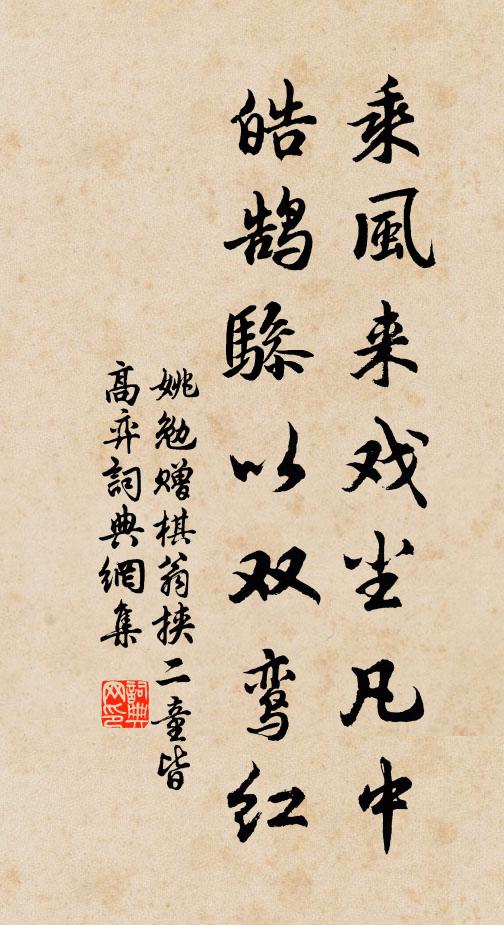 乘風来戏尘凡中
皓鹄骖以双鸾红
姚勉赠棋翁挟二童皆
高弈詞典網集
詞典网印